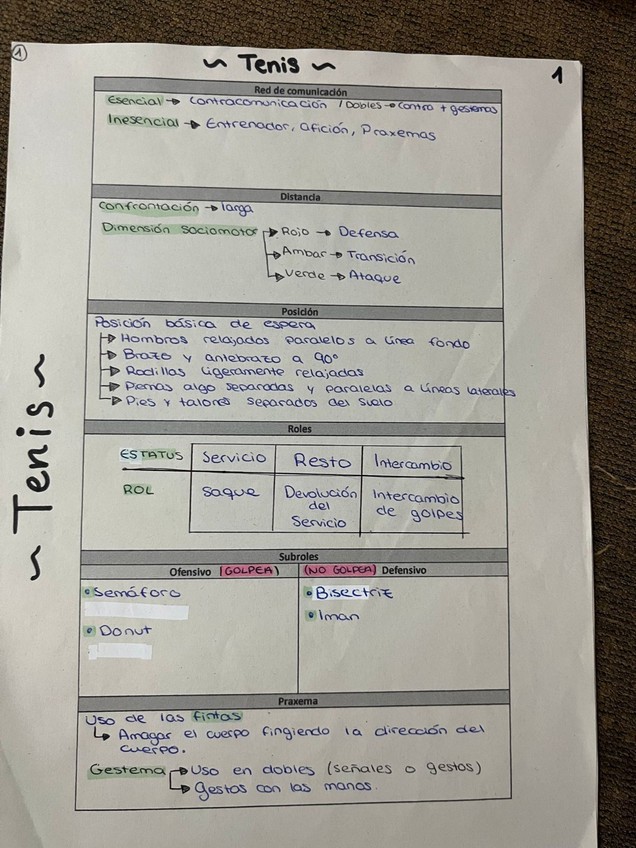 1
~ Tenis ~
1
Red de comunicación
Esencial → Contracomunicación / Dobles → contra + gestemas
Inesencial → Entrenador, afición, Praxemas
Distancia
Confrontación → larga
Dimensión sociomotor → Rojo → Defensa
→ Ambar → Transición
→ Verde → Ataque
Posición
Posición básica de espera
→ Hombros relajados paralelos a línea fondo
→ Brazo y antebrazo a 90°
→ Rodillas ligeramente relajadas
→ Piernas algo separadas y paralelas a líneas laterales
→ Pies y talones separados del suelo
~ Tenis ~
Roles
ESTATUS Servicio Resto Intercambio
ROL saque Devolución del Servicio Intercambio de golpes
Subroles
Ofensivo (GOLPEA) (NO GOLPEA) Defensivo
• Semáforo
• Donut
• Bisectriz
• Iman
Praxema
Uso de las fintas
↳ Amagar el cuerpo fingiendo la dirección del
cuerpo.
Gestema → Uso en dobles (señales o gestos)
→ Gestos con las manos.